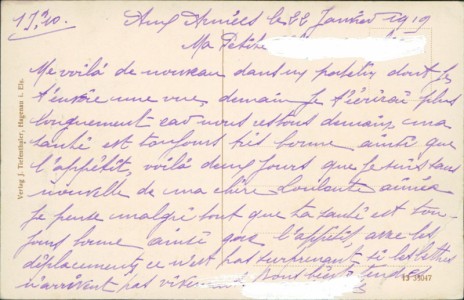 17,20. Aux Armées le 22 Janvier 1919
Ma Petite
Me voilà de nouveau dans un patelin dont je
t'envoie une vue, demain je t'écrirai plus
longuement car nous restons demain, ma
santé est toujours très bonne ainsi que
l'appétit, voilà deux jours que je suis sans
nouvelle de ma chère Louloute aimée
je pense malgré tout que ta santé est tou-
jours bonne ainsi que l'appétit, avec les
déplacements ce n'est pas surprenant si les lettres
n'arrivent pas Bons tendres
Verlag J. Tiefenthaler, Hagenau i. Els.